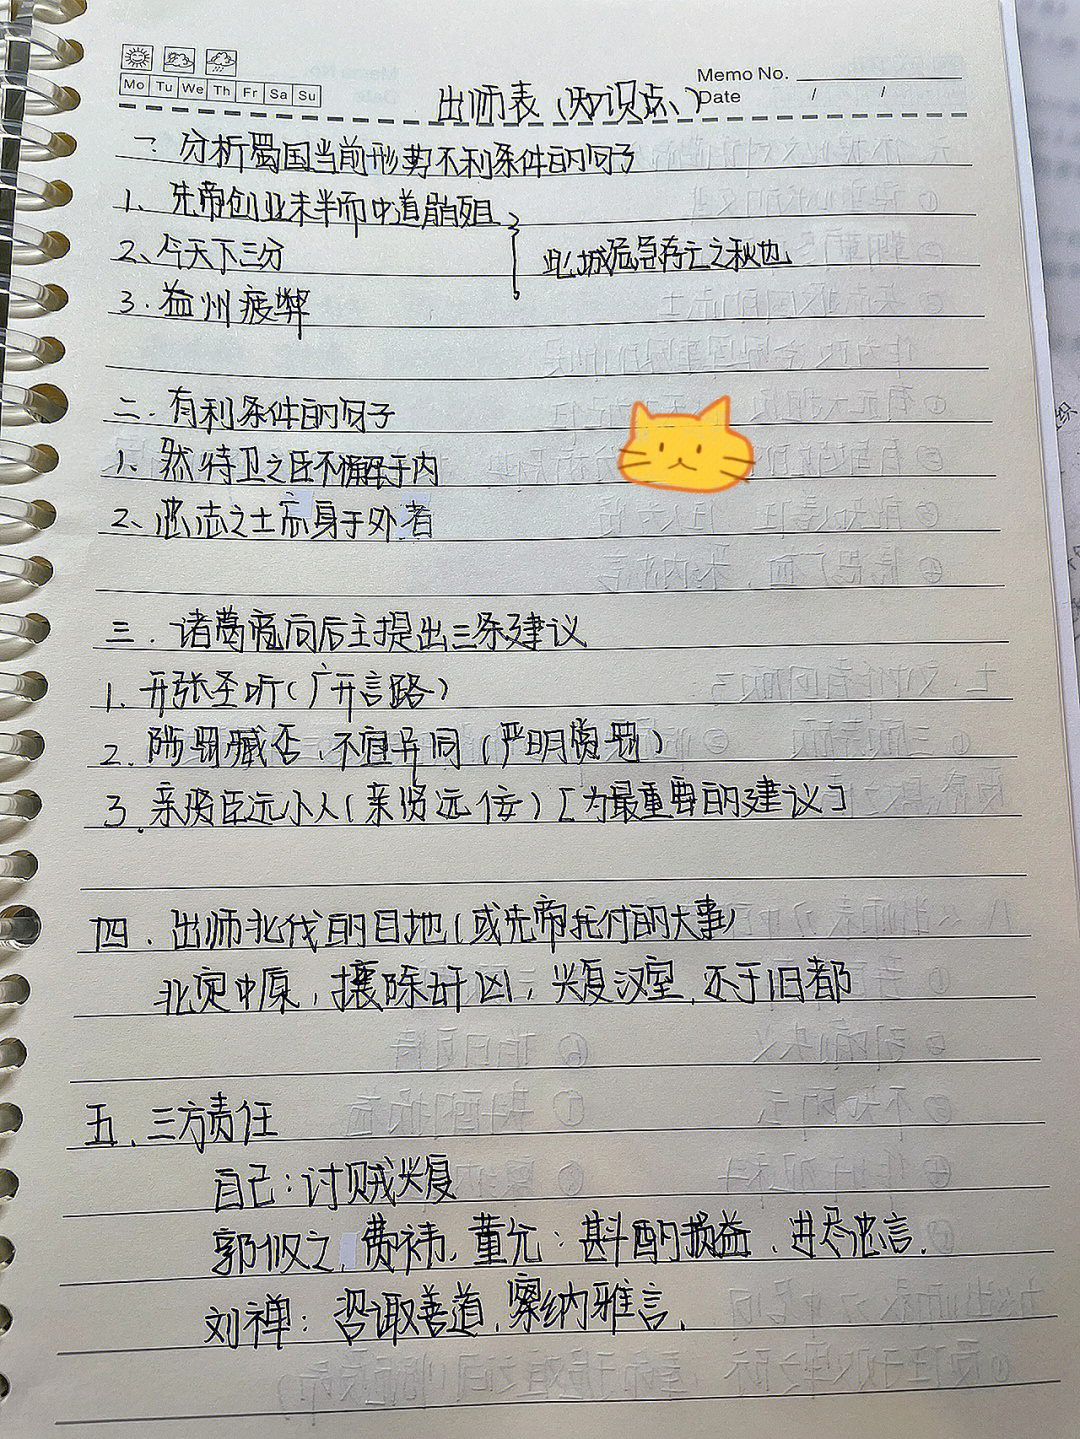 Mo Tu We Th Fr Sa Su
Memo No.
Date / /
出师表(知识点)
一、分析蜀国当前形势不利条件的句子
1、先帝创业未半而中道崩殂
2、今天下三分
3.益州疲弊
此城危急存亡之秋也
二.有利条件的句子
1、然侍卫之臣不懈于内
2、忠志之士忘身于外者
三.诸葛亮向后主提出三条建议
1.开张圣听(广开言路)
2.陟罚臧否,不宜异同(严明赏罚)
3.亲贤臣远小人(亲贤远佞)[为最重要的建议]
四.出师北伐的目地(或先帝托付的大事)
北定中原,攘除奸凶,兴复汉室,还于旧都
五、三方责任
自己:讨贼兴复
郭攸之、费祎、董允:斟酌损益、进尽忠言.
刘禅:咨诹善道、察纳雅言.